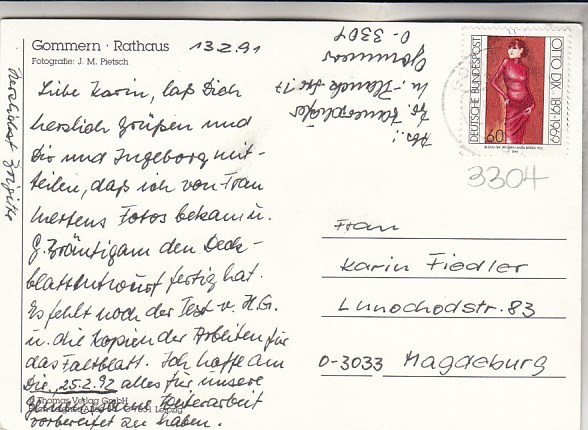 Gommern · Rathaus 13.2.91
Fotografie: J. M. Pietsch
Liebe Karin, laß Dich
herzlich grüßen und
Dir und Ingeborg mit-
teilen, daß ich von Frau
Mertens Fotos bekam u.
G. Bräutigam den Deck-
blattentwurf fertig hat.
Es fehlt noch der Text v. H.G.
u. die Kopien der Arbeiten für
das Faltblatt. Ich hoffe am
Die, 25.2.92 alles für unsere
vorbereitet zu haben.
Herzlichst Brigitte
© Thomas Verlag GmbH
Leipzig
Abs.:
Gommern
O-3304
DEUTSCHE BUNDESPOST
60
OTTO DIX · 1891-1969
3304
Frau
Karin Fiedler
Lunochodstr. 83
O-3033 Magdeburg